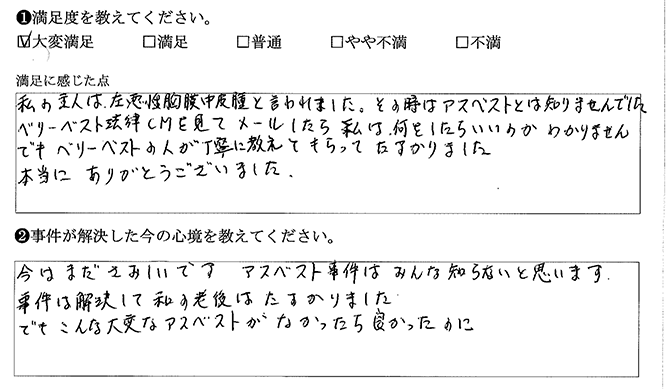 ❶満足度を教えてください。
☑大変満足 □満足 □普通 □やや不満 □不満
満足に感じた点
私の主人は、左悪性胸膜中皮腫と言われました。その時はアスベストとは知りませんでした
ベリーベスト法律CMを見てメールしたら私は、何をしたらいいのかわかりません
でもベリーベストの人が丁寧に教えてもらってたすかりました
本当にありがとうございました、
❷事件が解決した今の心境を教えてください。
今はまださみしいです アスベスト事件はみんな知らないと思います、
事件は解決して私の老後はたすかりました
でもこんな大変なアスベストがなかったら良かったのに